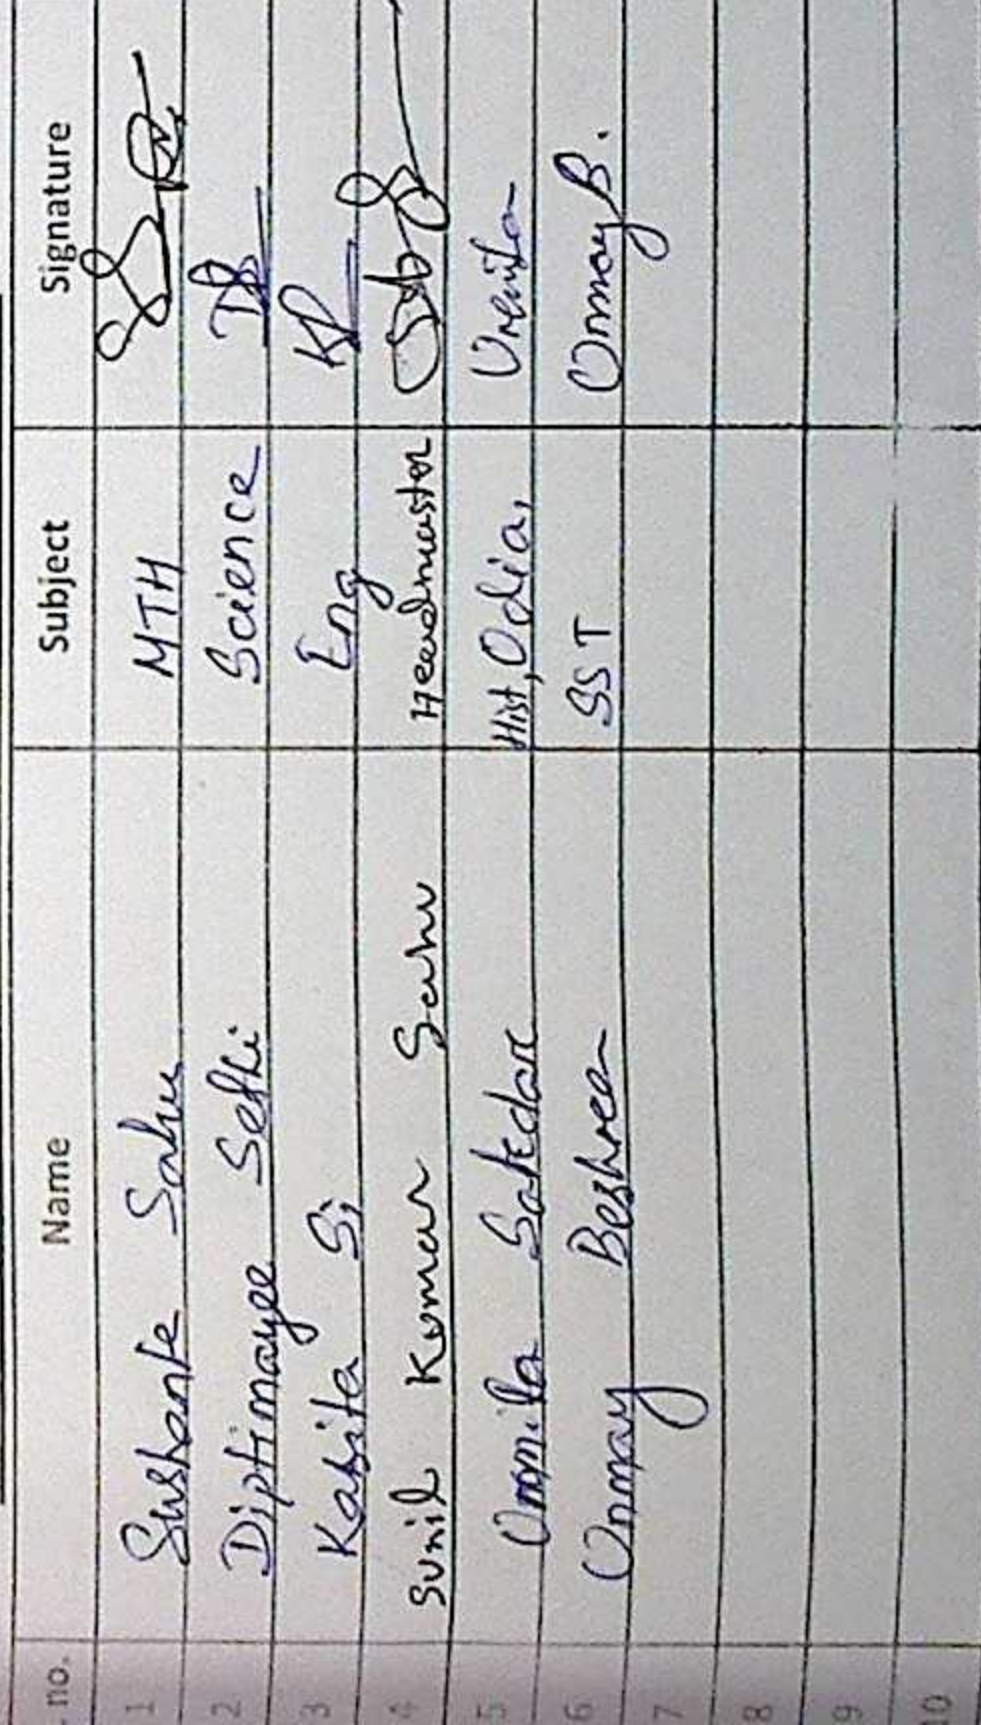 . no. Name Subject Signature
1 Sushanta Sahu MTH
2 Diptimayee Sethi Science DS
3 Kabita Si Eng
4 Sunil Kumar Sahu Headmaster
5 Urmila Hist, Odia, Urmila
6 Onmay Beshra SST Onmay B.
7
8
9
10